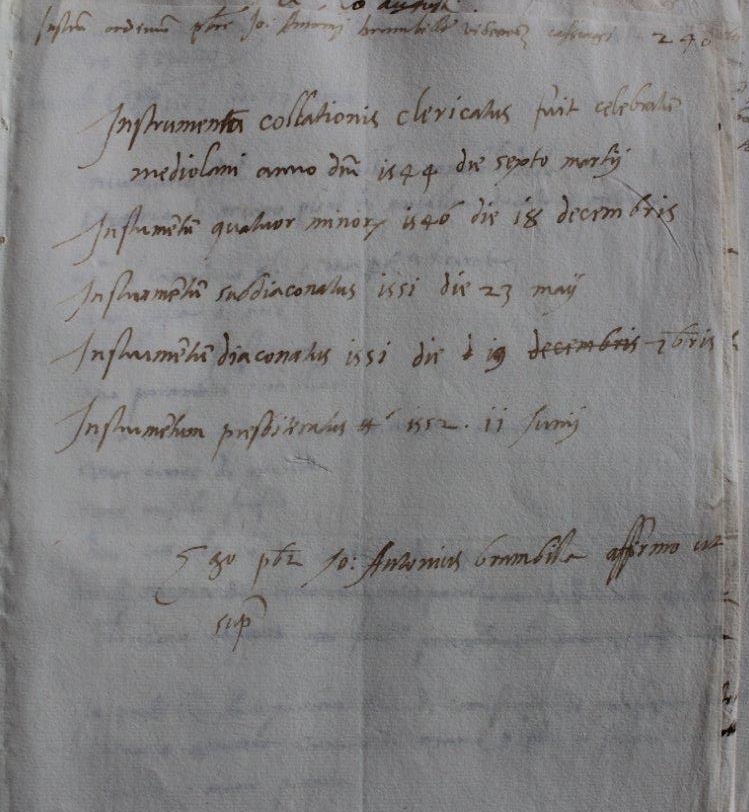 20 august
Instrũ ordinum pbri Jo: Antonij brambille 240
Instrumenta collationis clericatus fuit celebratũ
mediolani anno dñi 1544 die septo martij
Instumẽtũ quatuor minorꝝ 1546 die 18 decembris
Instrumẽtũ subdiaconatus 1551 die 23 maij
Instrumẽtũ diaconatus 1551 die 19 decembris Xbris
Instrumẽtum presbiteratus 1552. 11 Junij
Ego pbr Jo: Antonius brambilla affirmo ut
sup